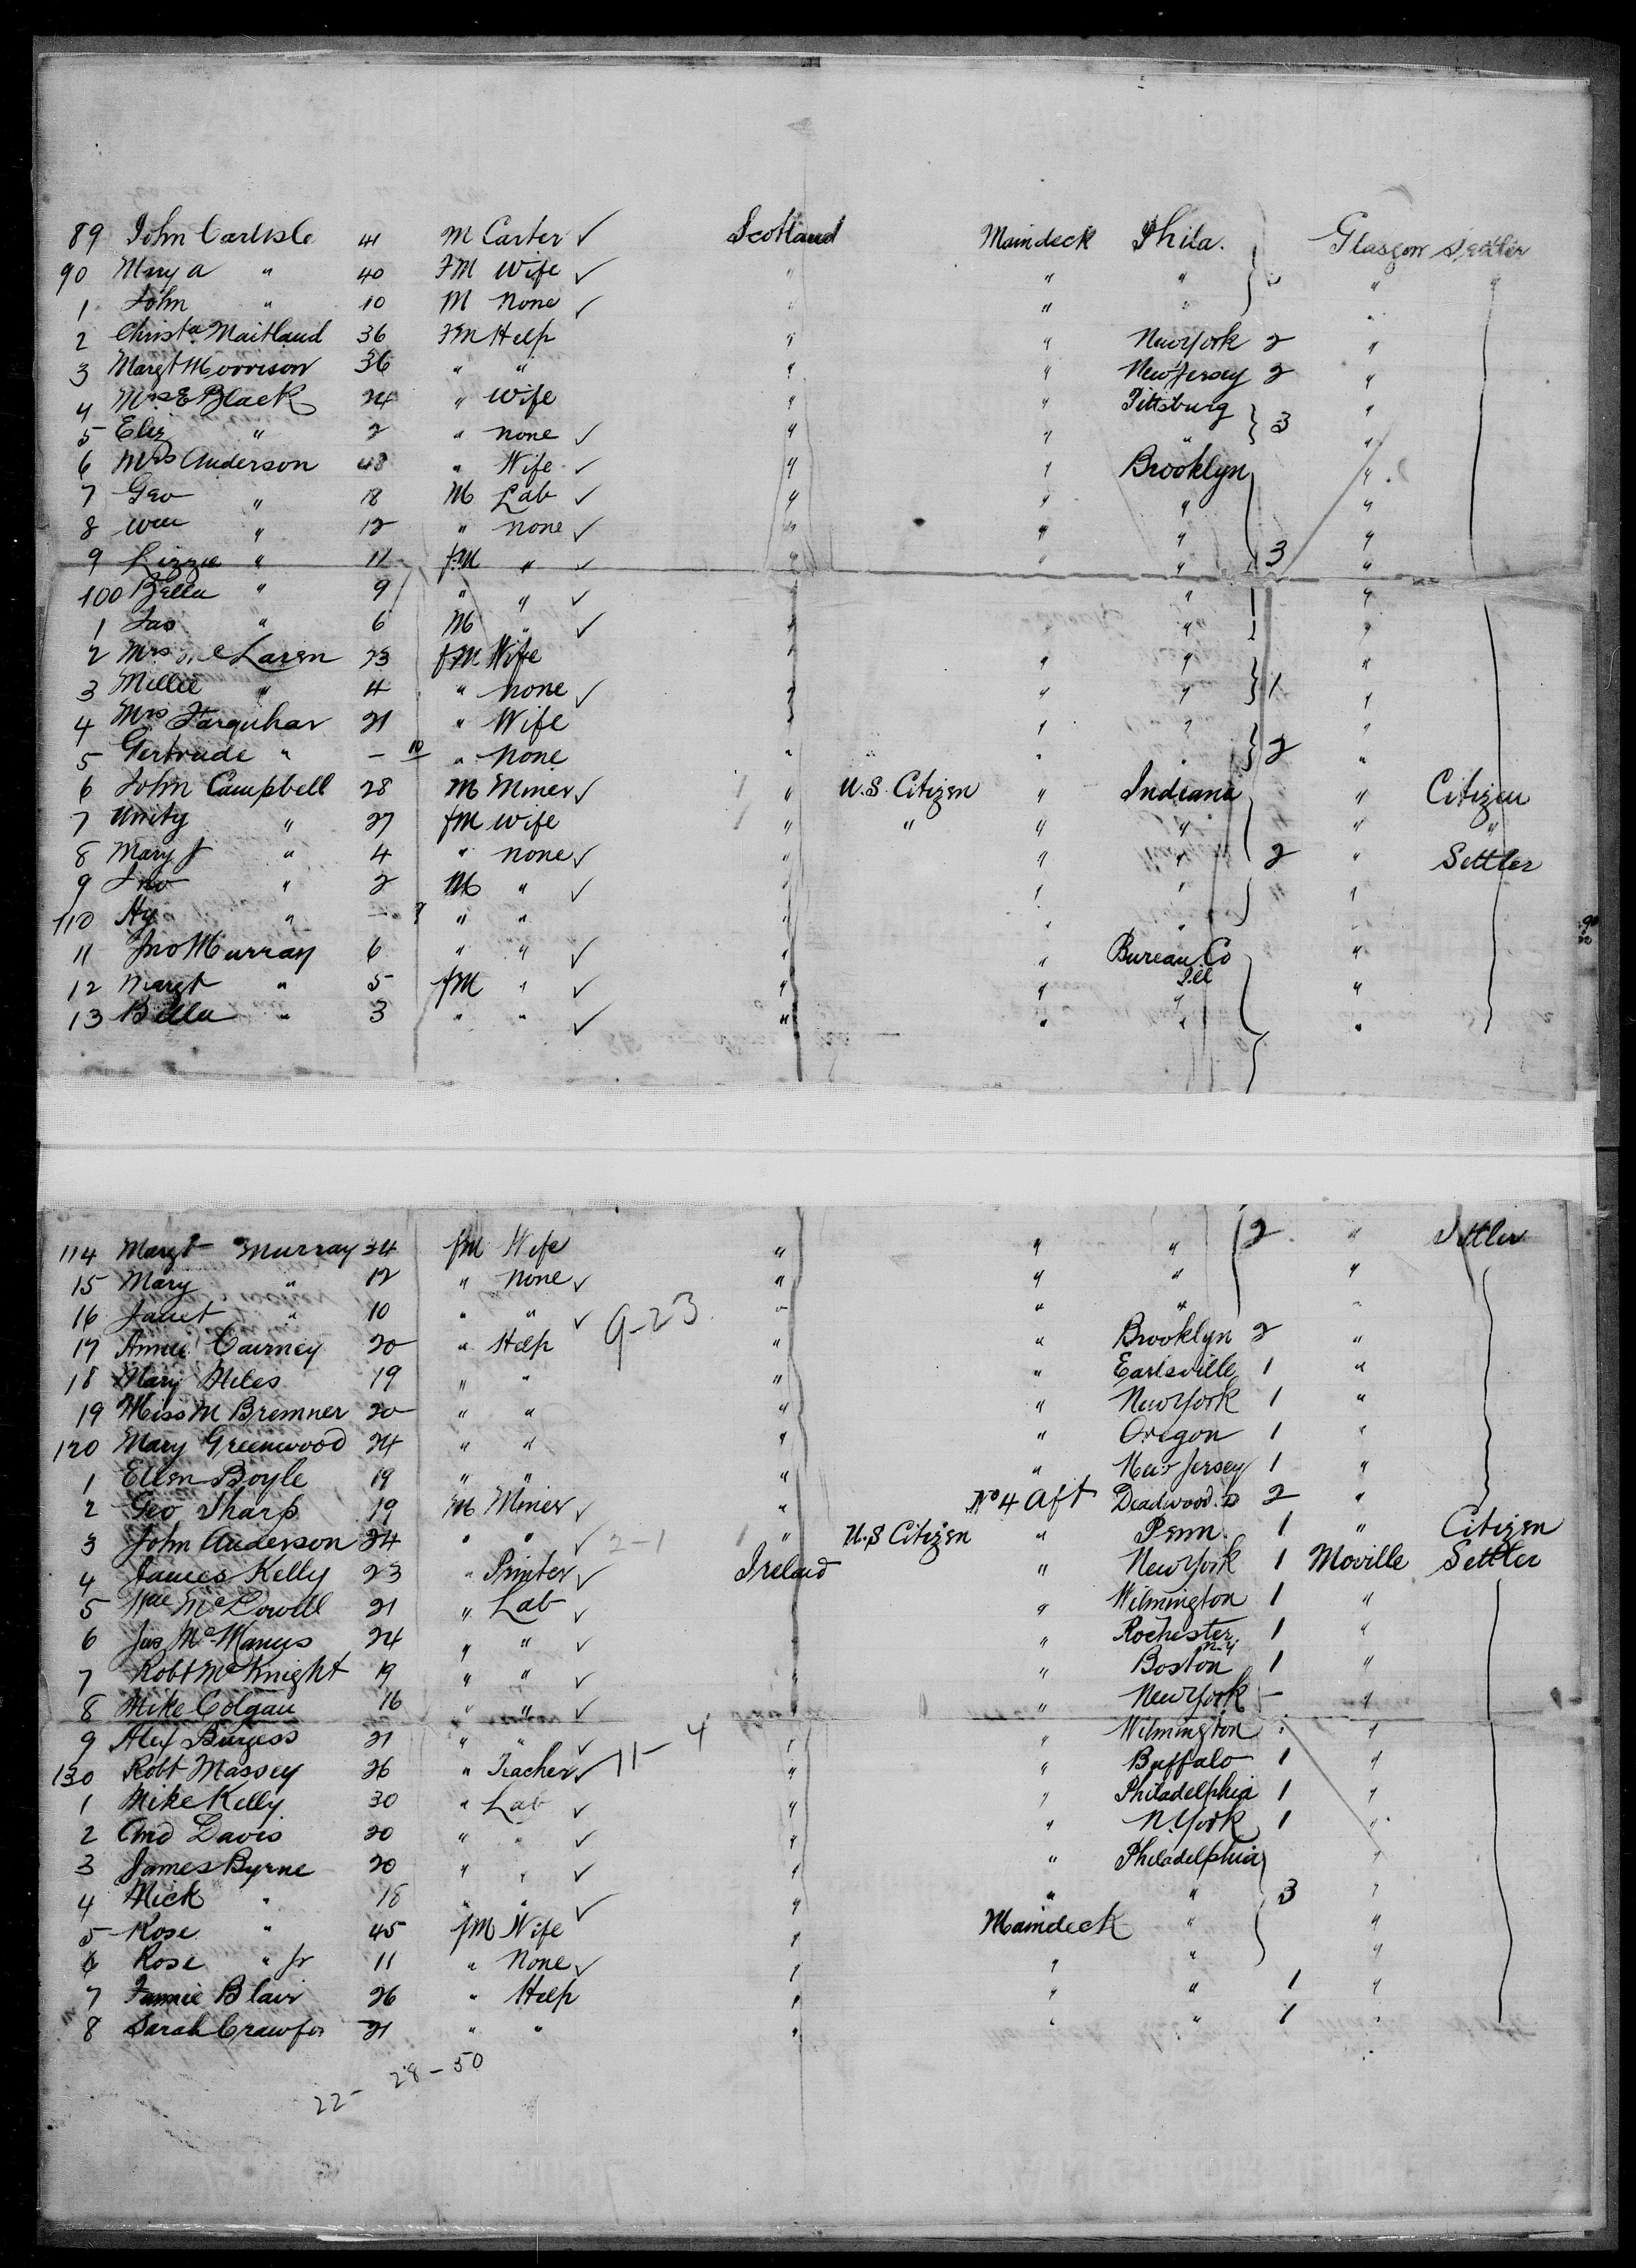 89 John Carlisle 41 M Carter ✓ Scotland Maindeck Phila. Glasgow Settler
90 Mary A " 40 FM Wife ✓ " " " 3 " "
1 John " 10 M none ✓ " " " "
2 Christa. Maitland 36 FM Help " " New York 2 "
3 Margt Morrison 36 " " " " New Jersey 2 "
4 Mrs E Black 24 " Wife " " Pittsburg "
5 Eliz " 2 " none ✓ " " " 3 "
6 Mrs Anderson 48 " Wife ✓ " " Brooklyn "
7 Geo " 18 M Lab ✓ " " " "
8 Wm " 12 " none ✓ " " " "
9 Lizzie " 11 fM " ✓ " " " 3 "
100 Bella " 9 " " ✓ " " "
1 Jas " 6 M " ✓ " " " "
2 Mrs McLaren 23 fM Wife " " " "
3 Millie " 4 " none ✓ " " " 1 "
4 Mrs Farquhar 21 " Wife " " " "
5 Gertrude " - 10 " none " " " 2 "
6 John Campbell 28 M Miner ✓ 1 " U.S. Citizen " Indiana " Citizen
7 Unity " 27 fM Wife 1 " " " " " "
8 Mary J " 4 " none ✓ " " " 2 " Settler
9 Jno " 2 M " ✓ " " " "
110 Hy " - " " " " "
11 Jno Murray 6 " " ✓ " " Bureau Co "
Ill
12 Margt " 5 fM " ✓ " " " "
13 Bella " 3 " " ✓ " " " "
114 Margt Murray 34 fM Wife " " " 2 " Settler
15 Mary " 12 " none ✓ " " " "
16 Janet " 10 " " ✓ 9-23 " " " "
17 Annie Cairney 20 " Help " " Brooklyn 2 "
18 Mary Miles 19 " " " " Earlsville 1 "
19 Miss M Bremner 20 " " " " New York 1 "
120 Mary Greenwood 24 " " " " Oregon 1 "
1 Ellen Boyle 19 " " " " New Jersey 1 "
2 Geo Sharp 19 M Miner ✓ " No 4 Aft Deadwood D 2 "
3 John Anderson 24 " " ✓ 2-1 1 " U.S Citizen " Penn. 1 " Citizen
4 James Kelly 23 " Printer ✓ Ireland " New York 1 Moville Settler
5 Wm McDowell 21 " Lab ✓ " Wilmington 1 "
6 Jas McManus 24 " " ✓ " " Rochester 1 "
N.Y
7 Robt McKnight 19 " " ✓ " " Boston 1 "
8 Mike Colgan 16 " " ✓ " " New York - "
9 Alex Burgess 21 " " ✓ " " Wilmington "
130 Robt Massey 26 " Teacher ✓ 11-4 " " Buffalo 1 "
1 Mike Kelly 30 " Lab ✓ " " Philadelphia 1 "
2 And Davis 20 " " ✓ " " N. York 1 "
3 James Byrne 20 " " ✓ " " Philadelphia "
4 Mick " 18 " " ✓ " " " 3 "
5 Rose " 45 fM Wife " Maindeck " "
6 Rose " Jr 11 " None ✓ " " " "
7 Fannie Blair 26 " Help " " " 1 "
8 Sarah Crawfor 21 " " " " " 1 "
22- 28-50